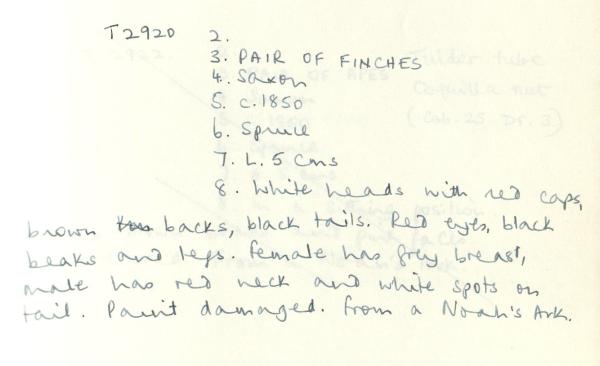 T2920 2.
3. PAIR OF FINCHES
4. Saxon
5. c.1850
6. Spruce
7. L. 5 cms
8. White heads with red caps,
brown backs, black tails. Red eyes, black
beaks and legs. Female has grey breast,
male has red neck and white spots on
tail. Paint damaged. From a Noah's Ark.